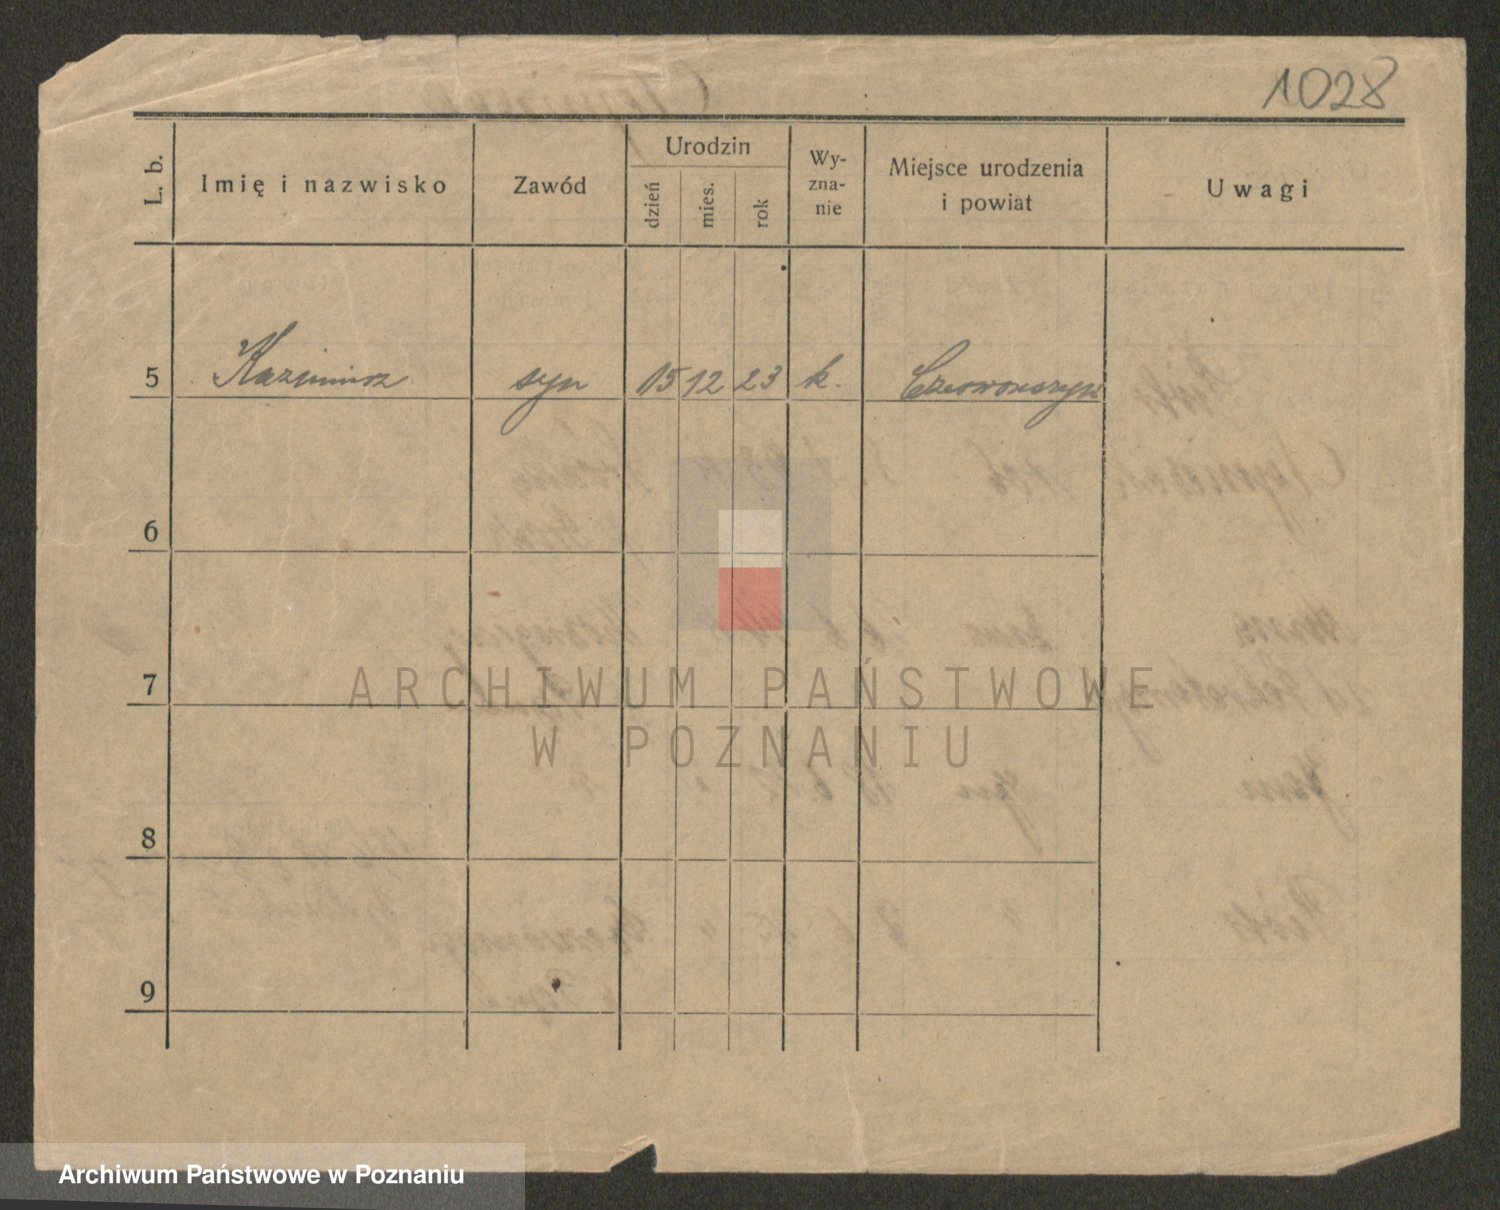 1028
L. b.
Imię i nazwisko
Zawód
Urodzin
dzień
mies.
rok
Wy-
zna-
nie
Miejsce urodzenia
i powiat
Uwagi
5 Kazimierz syn 15 12 23 k.
6
7
8
9
ARCHIWUM PAŃSTWOWE
W POZNANIU
Archiwum Państwowe w Poznaniu